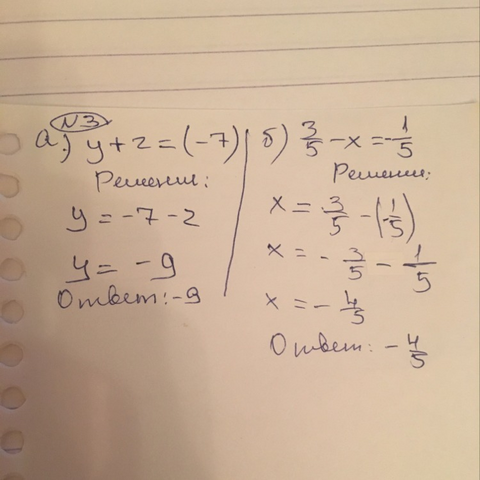 N3
а.) y + 2 = (-7)
Решение:
y = -7 - 2
y = -9
Ответ: -9
б) 3/5 - x = -1/5
Решение:
x = 3/5 - (1/5)
x = - 3/5 - 1/5
x = - 4/5
Ответ: - 4/5